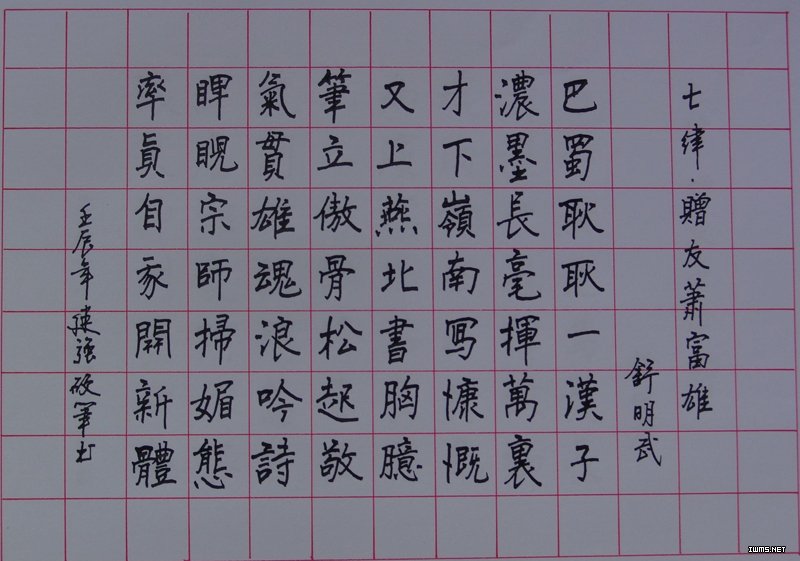 七律·贈友蕭富雄
舒明武
巴蜀耿耿一漢子
濃墨長毫揮萬裏
才下嶺南寫慷慨
又上燕北書胸臆
筆立傲骨松起敬
氣貫雄魂浪吟詩
睥睨宗師掃媚態
率真自家開新體
壬辰年陳強硬筆書
IWMS.NET